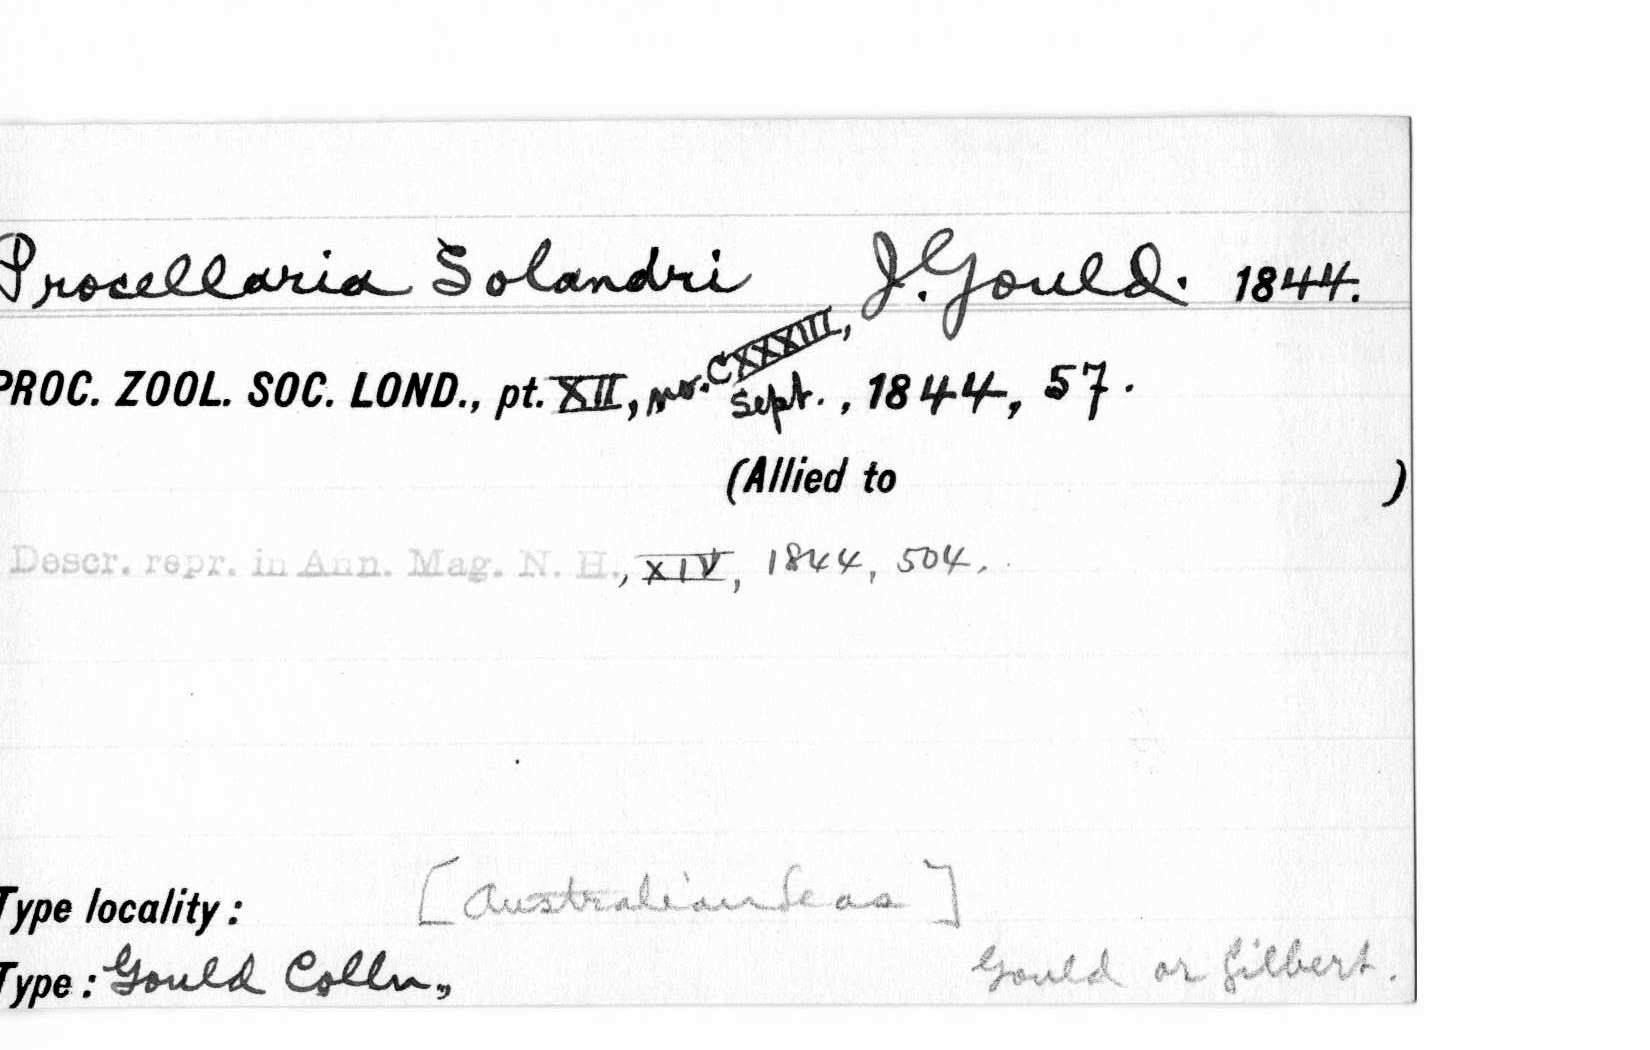 Procellaria Solandri J. Gould. 1844.
PROC. ZOOL. SOC. LOND., pt. XII, no. CXXXIII, Sept., 1844, 57.
(Allied to )
Descr. repr. in Ann. Mag. N. H., XIV, 1844, 504.
Type locality: [Australian Seas]
Type: Gould Colln., Gould or Gilbert.